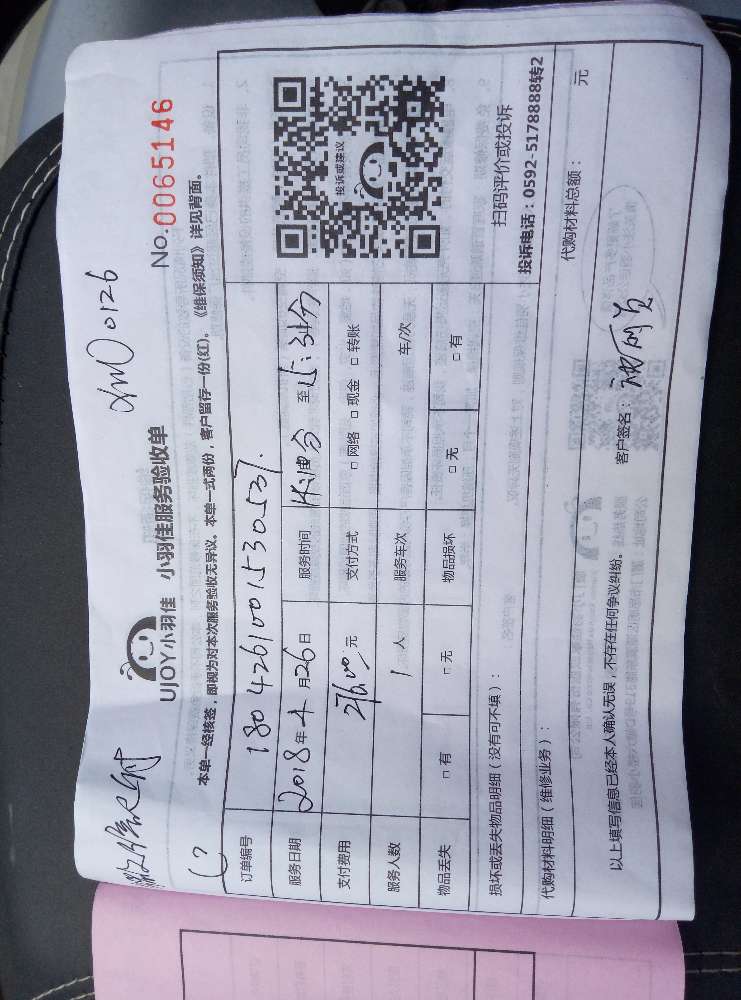 UJOY小羽佳 小羽佳服务验收单
0126
No.0065146
本单一经核签，即视为对本次服务验收无异议。本单一式两份，客户留存一份(红)。《维保须知》详见背面。
订单编号 180426100153053
服务日期 2018年4月26日 服务时间 至
支付费用 276.00元 支付方式 □网络 □现金 □转账
服务人数 1人 服务车次 车/次
物品丢失 □有 □无 物品损坏 □无 □有
投诉或建议
扫码评价或投诉
投诉电话：0592-5178888转2
损坏或丢失物品明细（没有可不填）：
代购材料明细（维修业务）： 代购材料总额： 元
以上填写信息已经本人确认无误，不存在任何争议纠纷。 客户签名：